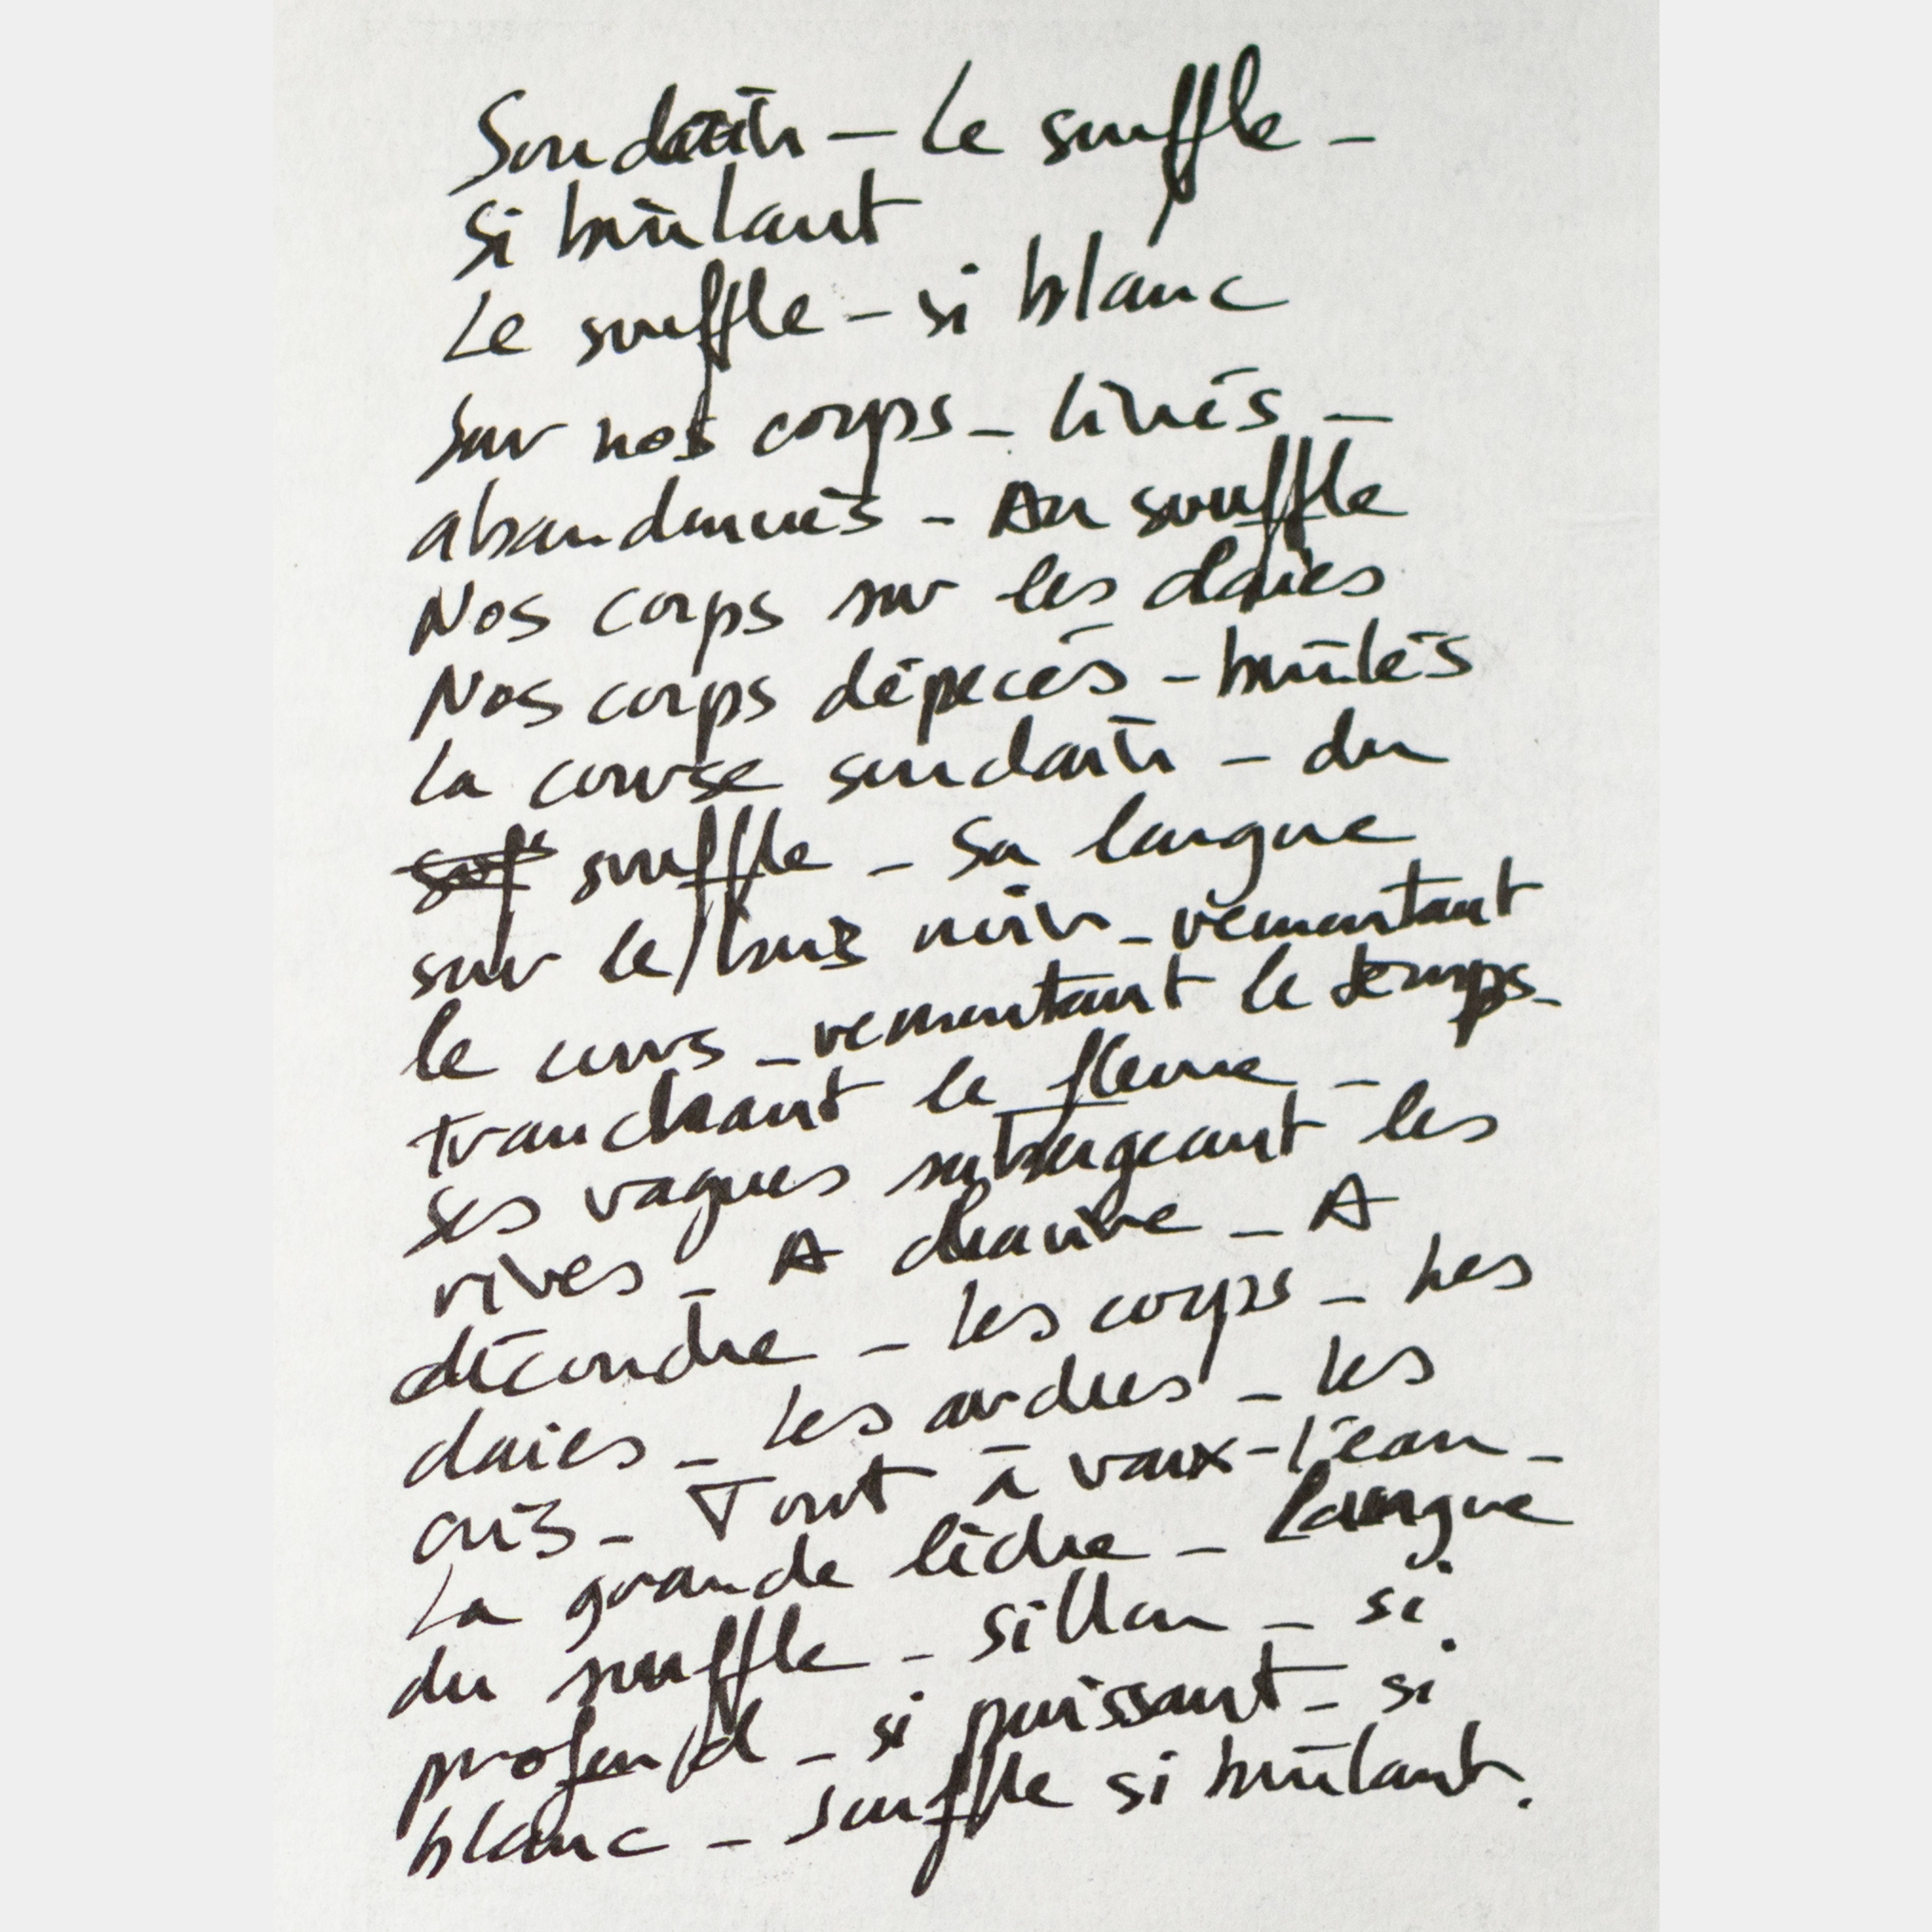 Soudain – Le souffle –
si brûlant
Le souffle – si blanc
Sur nos corps – livrés –
abandonnés – Au souffle
Nos corps sur les claies
Nos corps dépecés – brûlés
La course soudain – du
souffle – Sa langue
sur le bras noir – remontant
le cours – remontant le temps –
tranchant le fleuve –
Ses vagues submergeant les
rives – A
découdre – Les corps – Les
claies – Les arches – Les
cris – Tout à vaux-l'eau –
La grande lèche – Langue
du souffle – Sillon – si
profond – si puissant – si
blanc – Souffle si brûlant.